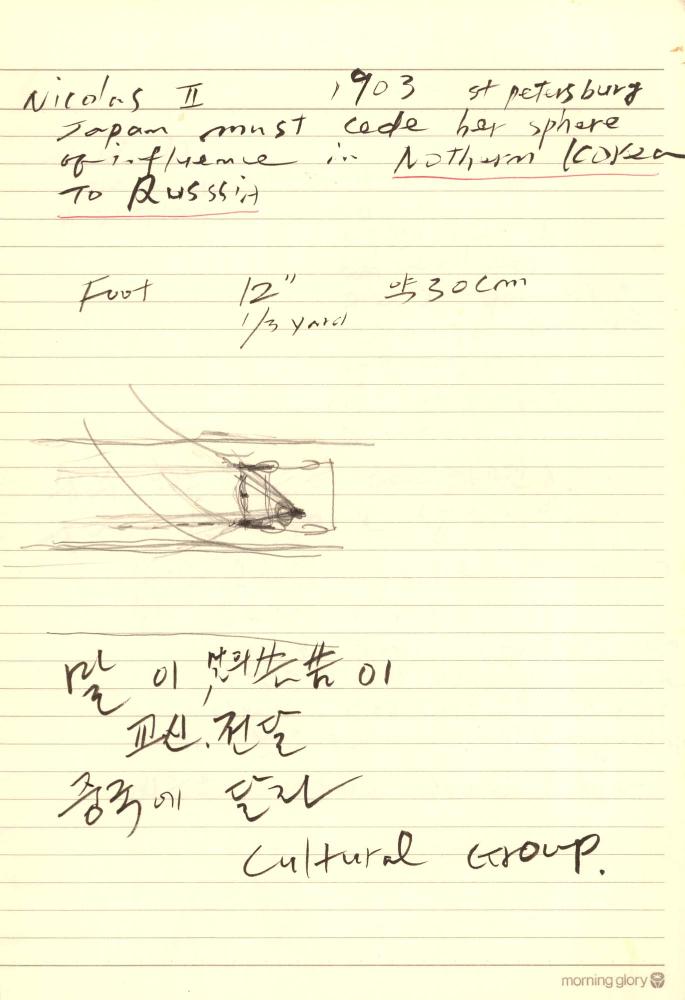 Nicolas II 1903 st petersburg
Japan must cede her sphere
of influence in Nothern Korea
To Russia
Foot 12" 약 30cm
1/3 yard
말이 이
교신, 전달
중국에 달라
Cultural Group.
morning glory